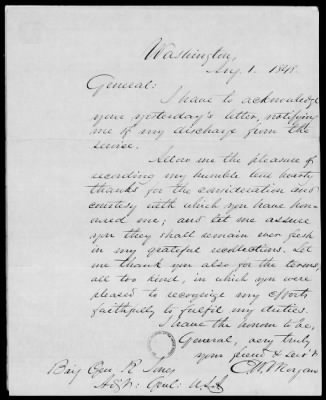 Washington,
Aug. 1. 1848.
General:
I have to acknowledge
your yesterday's letter, notifying
me of my discharge from the
service.
Allow me the pleasure of
recording my humble but hearty
thanks for the consideration and
courtesy with which you have hon-
ored me; and let me assure
you they shall remain ever fresh
in my grateful recollections. Let
me thank you also for the terms,
all too kind, in which you were
pleased to recognize my efforts
faithfully to fulfil my duties.
I have the honor to be,
General, very truly
your friend & servt
C. W. Morgan
Brig Gen. R. Jones
Adjt: Genl: U.S.A